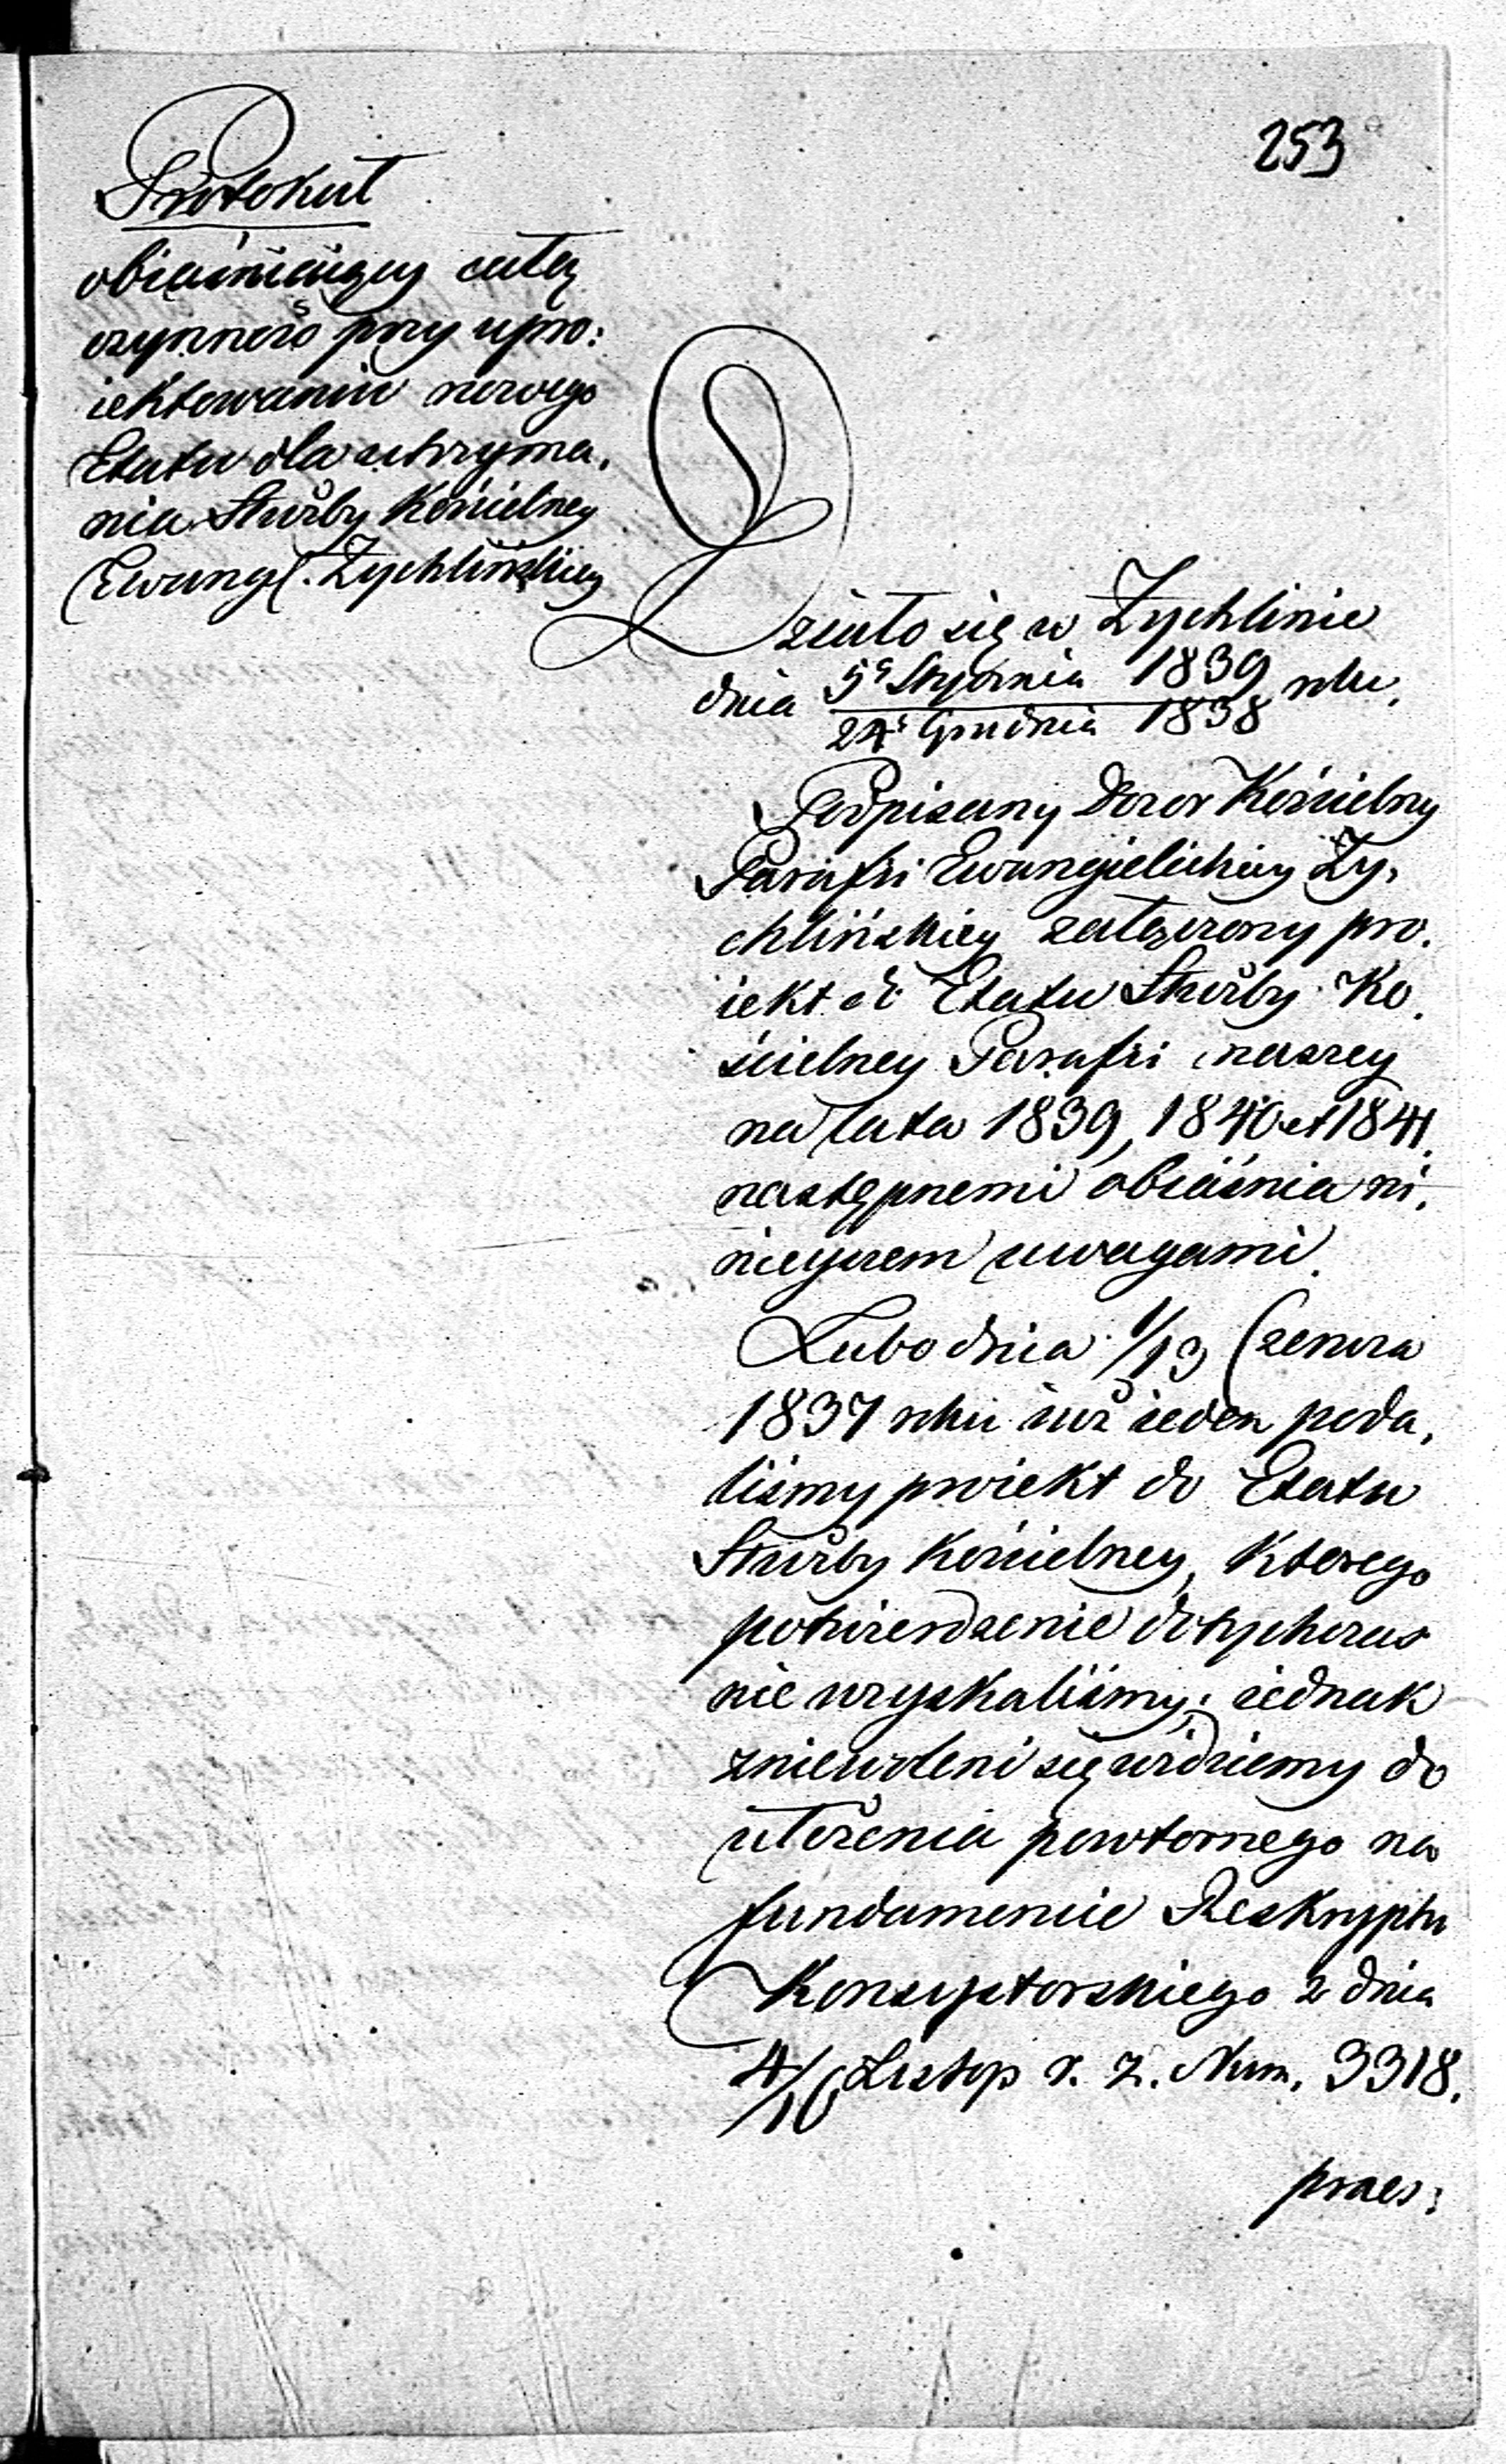 253
Protokuł
obiaśniaiący całą
czynność przy upro:
iektowaniu nowego
Etatu dla utrzyma,
nia Służby Kościelney
Ewangl. Żychlińskiey
Działo się w Żychlinie
dnia 5º Stycznia 1839 roku.
24º Grudnia 1838
Podpisany Dozor Kościelny
Parafii Ewangielickiey Ży,
chlińskiey załączony pro.
iekt do Etatu Służby Ko.
ścielney Parafii naszey
na lata 1839, 1840 et 1841.
następnemi obiaśnia ni,
nieyszem uwagami.
Lubo dnia 1/13 Czerwca
1837 roku iuż ieden poda,
liśmy proiekt do Etatu
Służby Kościelney, ktorego
potwierdzenie dotychczas
nie uzyskaliśmy; iednak
zniewoleni się widziemy do
ułożenia powtornego na
fundamencie Reskryptu
Konsystorskiego z dnia
4/16 Listop r. z. Num. 3318.
praes: